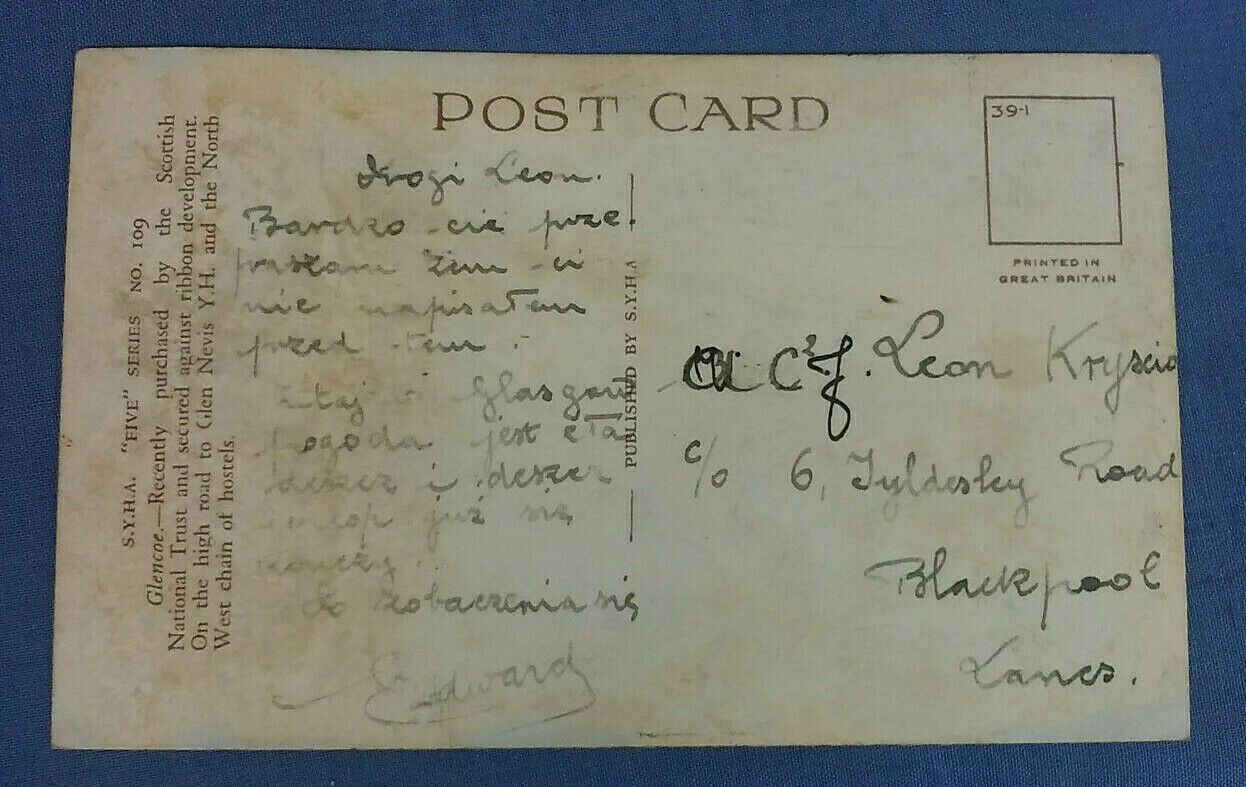 POST CARD
39-1
PRINTED IN
GREAT BRITAIN
S.Y.H.A. "FIVE" SERIES NO. 109
Glencoe.—Recently purchased by the Scottish
National Trust and secured against ribbon development.
On the high road to Glen Nevis Y.H. and the North
West chain of hostels.
PUBLISHED BY S.Y.H.A
Drogi Leon.
Bardzo cie prze
praszam żem ci
nie napisałem
przed tem
Glasgow
pogoda jest
deszcz i deszcz
urlop już się
kończy
do zobaczenia się
Edward
A C2 J. Leon Kryscio
c/o 6, Tyldesley Road
Blackpool
Lancs.